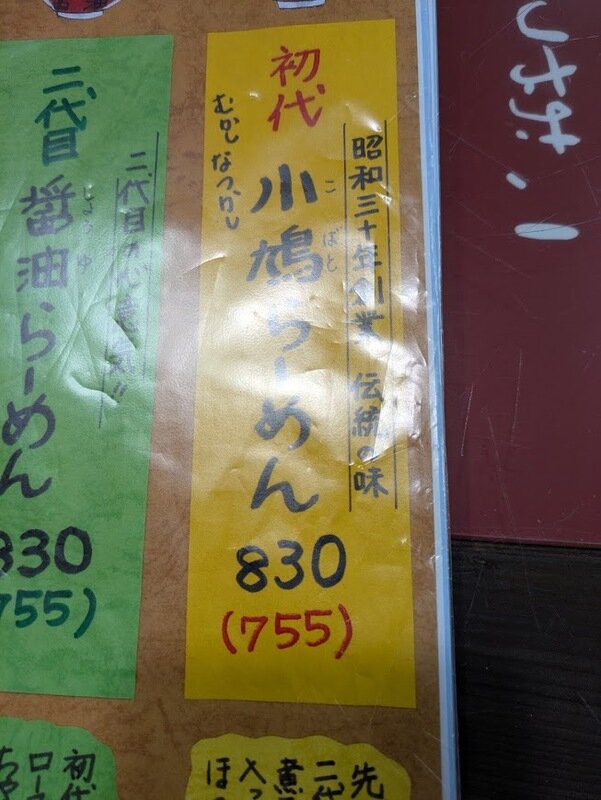 初代
昭和三十年創業 伝統の味
小鳩らーめん
こばと
むかしなつかし
830
(755)
二代目
醤油らーめん
しょうゆ
830
755)
先
二代
煮
ほ
初代
ロー